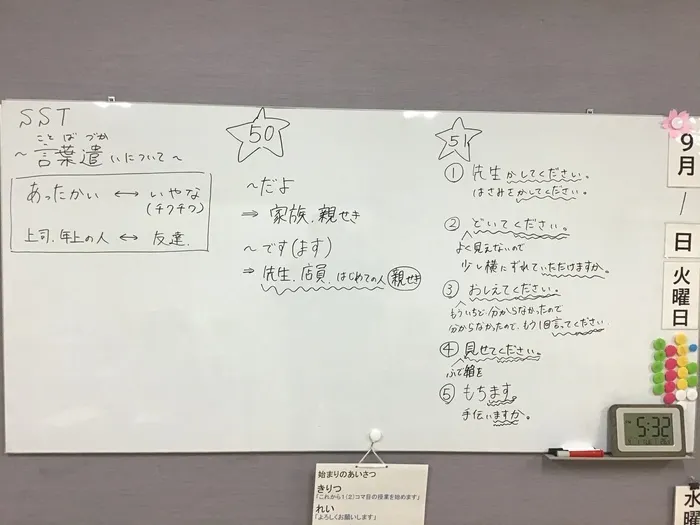 SST
ことば づか
～言葉遣いについて～
あったかい ↔ いやな
(チクチク)
上司.年上の人 ↔ 友達.
50
～だよ
⇒ 家族.親せき
～です(ます)
⇒ 先生.店員.はじめての人 親せき
51
① 先生かしてください。
はさみをかしてください。
② どいてください。
よく見えないので
少し横にずれていただけますか。
③ おしえてください。
もういちど.分からなかったので
分からなかったので、もう1回言ってください
④ 見せてください。
ふで箱を
⑤ もちます。
手伝いますか。
9月
/
日
火曜日
5:32
始まりのあいさつ
きりつ
「これから1(2)コマ目の授業を始めます」
れい
「よろしくお願いします」
水